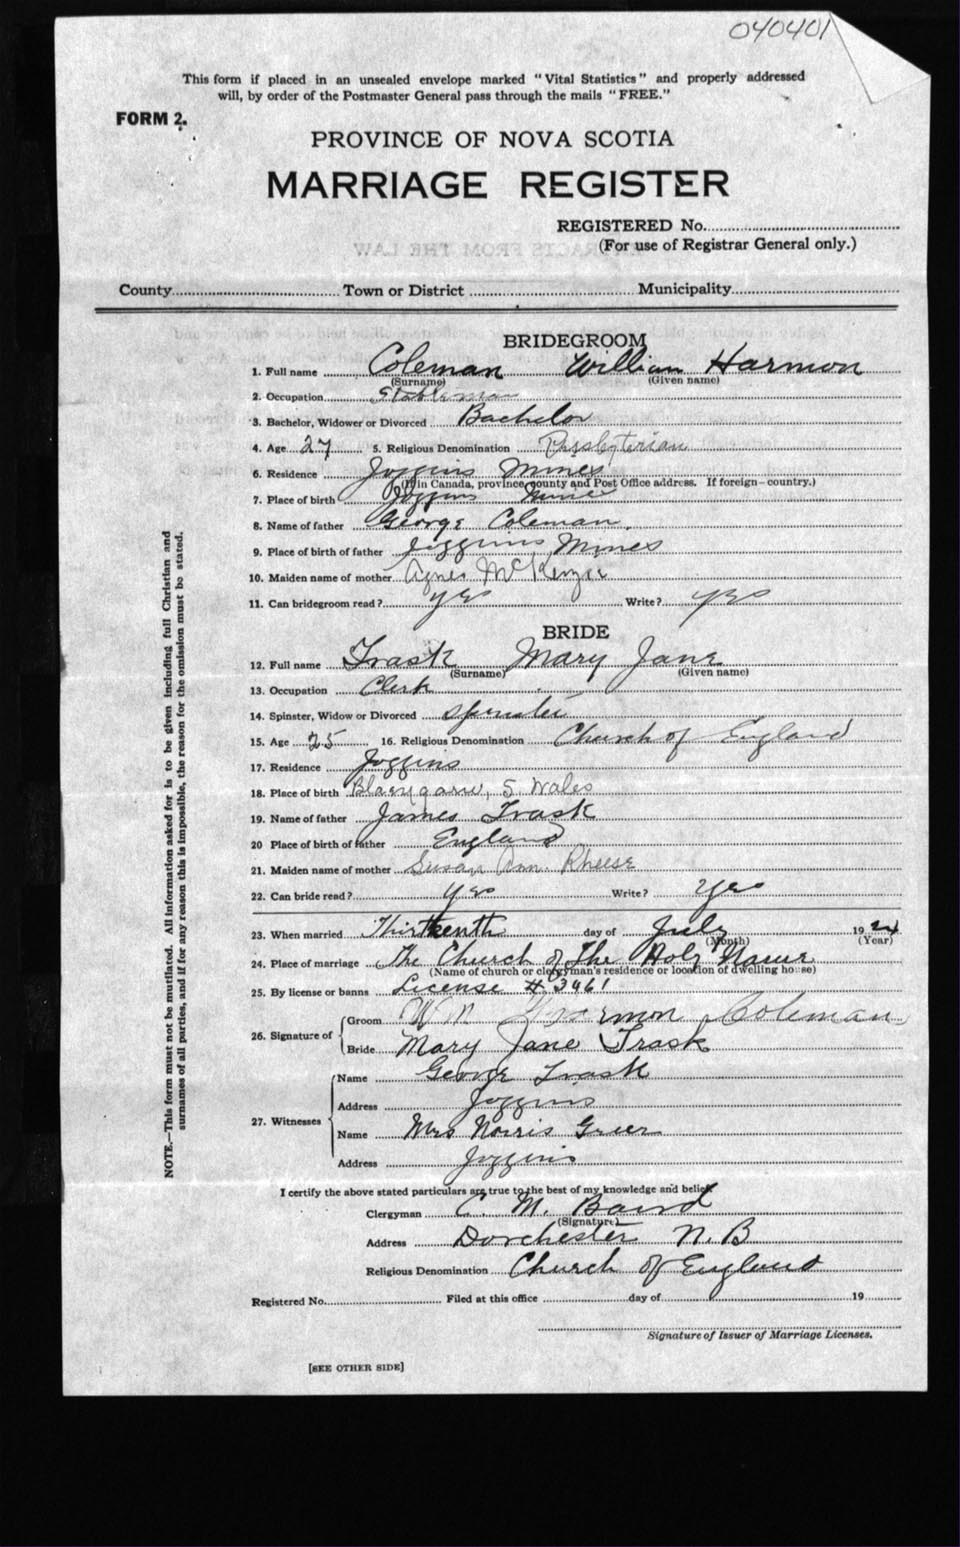 040401
This form if placed in an unsealed envelope marked "Vital Statistics" and properly addressed
will, by order of the Postmaster General pass through the mails "FREE."
FORM 2.
PROVINCE OF NOVA SCOTIA
MARRIAGE REGISTER
REGISTERED No.
(For use of Registrar General only.)
EXTRACTS FROM THE LAW
County Town or District Municipality
BRIDEGROOM
1. Full name Coleman William Harmon
(Surname) (Given name)
2. Occupation Stableman
3. Bachelor, Widower or Divorced Bachelor
4. Age 27 5. Religious Denomination Presbyterian
6. Residence Joggins Mines
(If in Canada, province, county and Post Office address. If foreign—country.)
7. Place of birth Joggins Mine
8. Name of father George Coleman.
9. Place of birth of father Joggins Mines
10. Maiden name of mother Agnes McKenzie
11. Can bridegroom read? yes Write? yes
BRIDE
12. Full name Trask Mary Jane
(Surname) (Given name)
13. Occupation Clerk
14. Spinster, Widow or Divorced Spinster
15. Age 25 16. Religious Denomination Church of England
17. Residence Joggins
18. Place of birth Blaengarw, S. Wales
19. Name of father James Trask
20 Place of birth of father England
21. Maiden name of mother Susan Ann Rheese
22. Can bride read? yes Write? yes
23. When married Thirteenth day of July 1924
(Month) (Year)
24. Place of marriage The Church of The Holy Name
(Name of church or clergyman's residence or location of dwelling house)
25. By license or banns License # 3961
26. Signature of Groom Wm Harmon Coleman
Bride Mary Jane Trask
27. Witnesses Name George Trask
Address Joggins
Name Mrs Norris Greer
Address Joggins
I certify the above stated particulars are true to the best of my knowledge and belief.
Clergyman C. M. Baird
(Signature)
Address Dorchester N.B
Religious Denomination Church of England
Registered No. Filed at this office day of 19
Signature of Issuer of Marriage Licenses.
[SEE OTHER SIDE]
NOTE.—This form must not be mutilated. All information asked for is to be given including full Christian and
surnames of all parties, and if for any reason this is impossible, the reason for the omission must be stated.